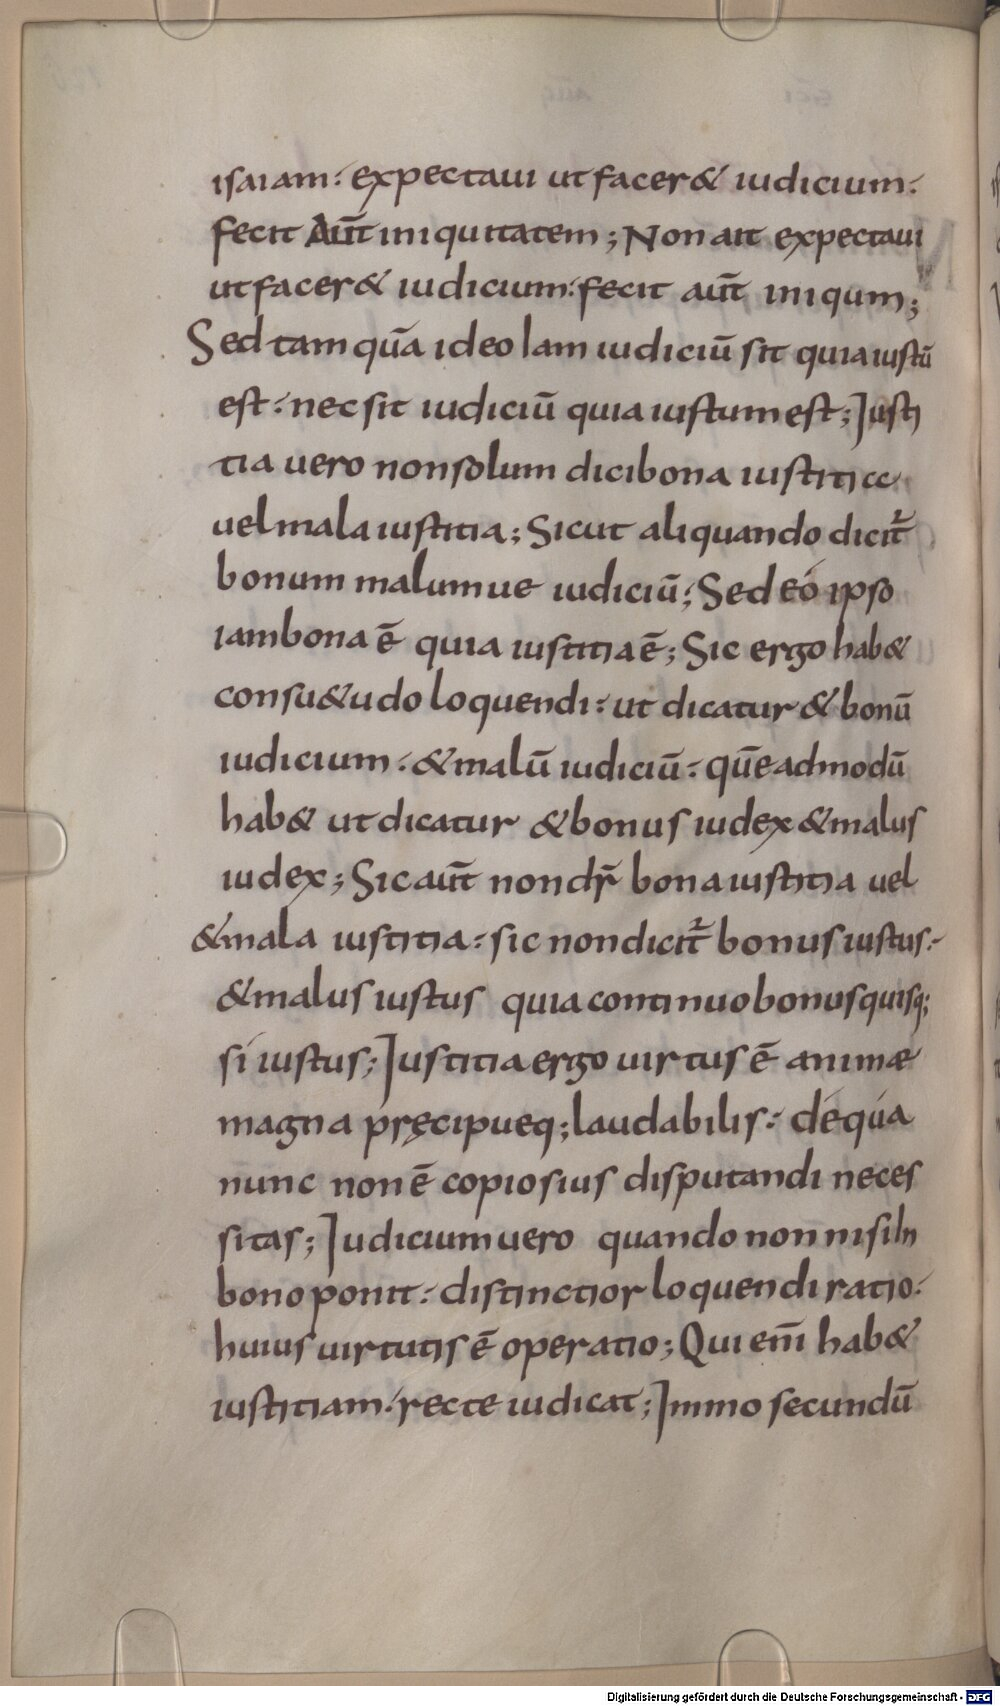 isaiam: expectaui ut facer& iudicium:
fecit Aut̄ iniquitatem; Non ait expectaui
ut facer& iudicium: fecit aut̄ iniqum;
Sed tam quā ideo Iam iudiciū sit quia iustū
est: nec sit iudiciū quia iustum est; Justi
tia uero non solum dici bona iustitia
uel mala iustitia; Sicut aliquando dicit̄
bonum malumue iudiciū; Sed eó ipso
iam bona ē quia iustitia ē; Sic ergo hab&
consu&udo loquendi: ut dicatur & bonū
iudicium: & malū iudiciū: quē admodū
hab& ut dicatur & bonus iudex & malus
iudex; Sic aut̄ non dr̄ bona iustitia uel
& mala iustitia: sic non dicit̄ bonus iustus:
& malus iustus quia continuo bonus quisq;
si iustus; Justitia ergo uirtus ē animæ
magna pręcipueq; laudabilis: de qua
nunc non ē copiosius disputandi neces
sitas; Judicium uero quando non nisi In
bono ponit: distinctior loquendi ratio:
huius uirtutis ē operatio; Qui eni̅ hab&
iustitiam: recte iudicat; Immo secundū
Digitalisierung gefördert durch die Deutsche Forschungsgemeinschaft - DFG